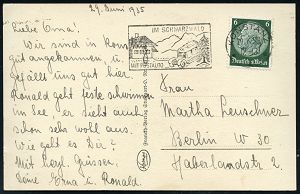 29. Juni 1935
Liebe Oma!
Wir sind in
gut angekommen, u.
gefällt uns gut hier.
Ronald geht feste schwimmen
im See, er sieht auch
schon sehr wohl aus.
Wie geht es Dir?
Mit herzl. Grüssen
Deine Erna u. Ronald
IM SCHWARZWALD
MIT POSTAUTO
6 6
Deutsches Reich
Frau
Martha Leuschner
Berlin W 30
Haberlandstr. 2